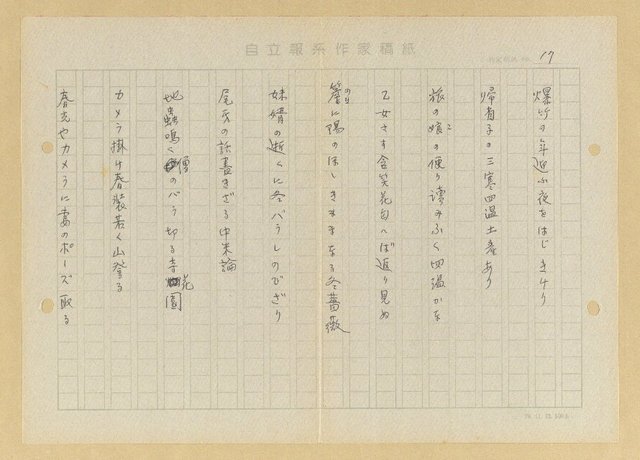 自立報系作家稿紙
17
爆竹の年迎ふ夜をはじきけり
帰省子の三寒四温土産あり
旅の娘の便り読みふく四温かな
乙女さす含笑花匂へば返り見ぬ
簷に陽のほしきままなる冬薔薇
妹婿の逝くに冬バラしのびぎり
尾牙の話盡きざる中米論
地蟲鳴く僧のバラ切る寺花園
カメラ掛け春装若く山登る
春光やカメラに妻のポーズ取る